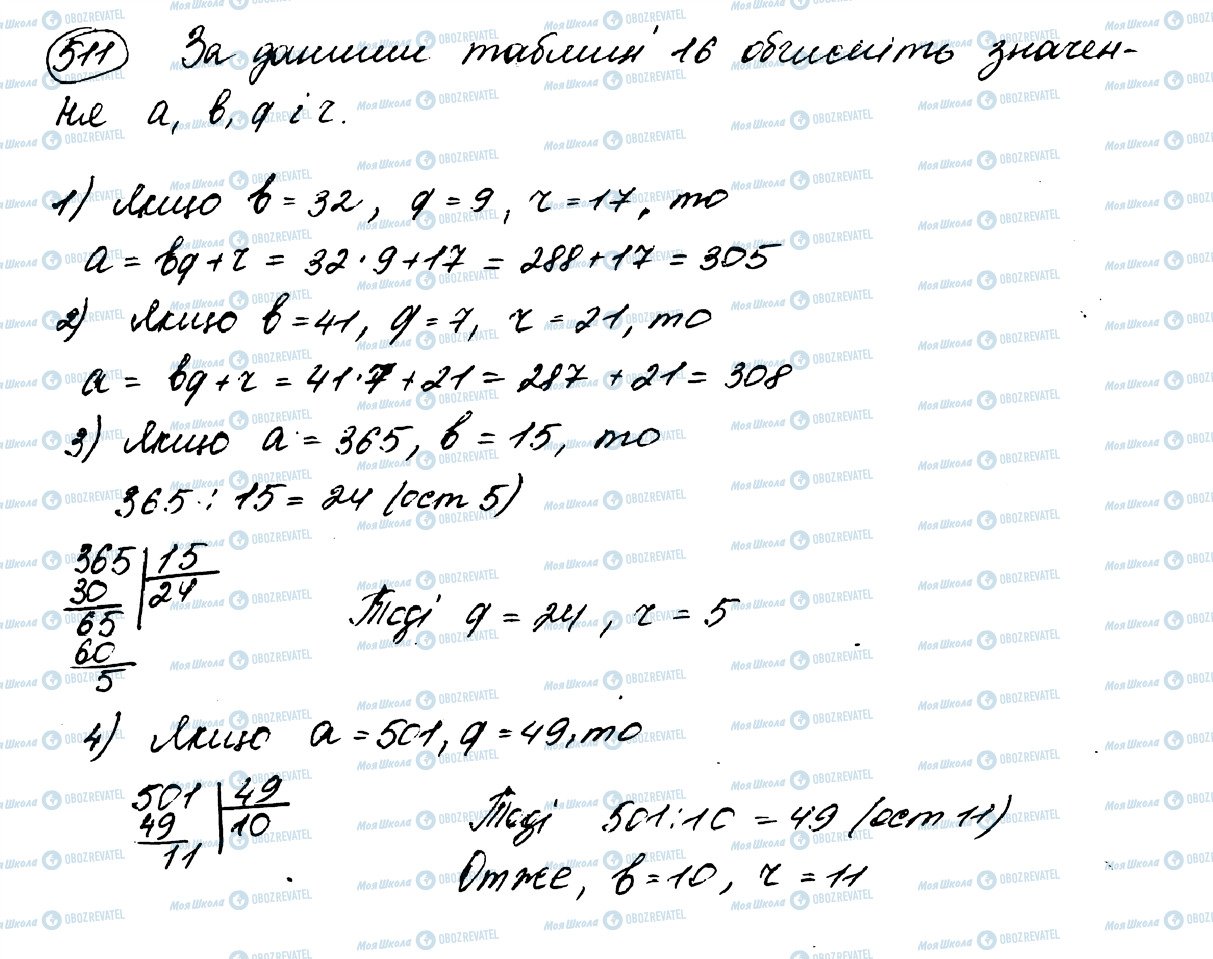 511 За даними таблиці 16 обчисліть значен-
ня a, b, q і r.
1) Якщо b = 32, q = 9, r = 17, то
a = bq + r = 32 · 9 + 17 = 288 + 17 = 305
2) Якщо b = 41, q = 7, r = 21, то
a = bq + r = 41 · 7 + 21 = 287 + 21 = 308
3) Якщо a = 365, b = 15, то
365 : 15 = 24 (ост 5)
365 | 15
30 | 24
65
60
5
Тоді q = 24, r = 5
4) Якщо a = 501, q = 49, то
501 | 49
49 | 10
11
Тоді 501 : 10 = 49 (ост 11)
Отже, b = 10, r = 11
Моя Школа OBOZREVATEL